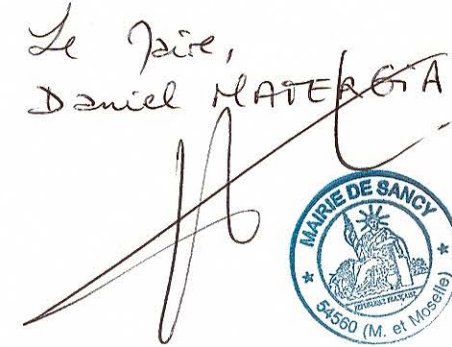 Le Maire,
Daniel MATERGIA
MAIRIE DE SANCY
REPUBLIQUE FRANÇAISE
54560 (M. et Moselle)